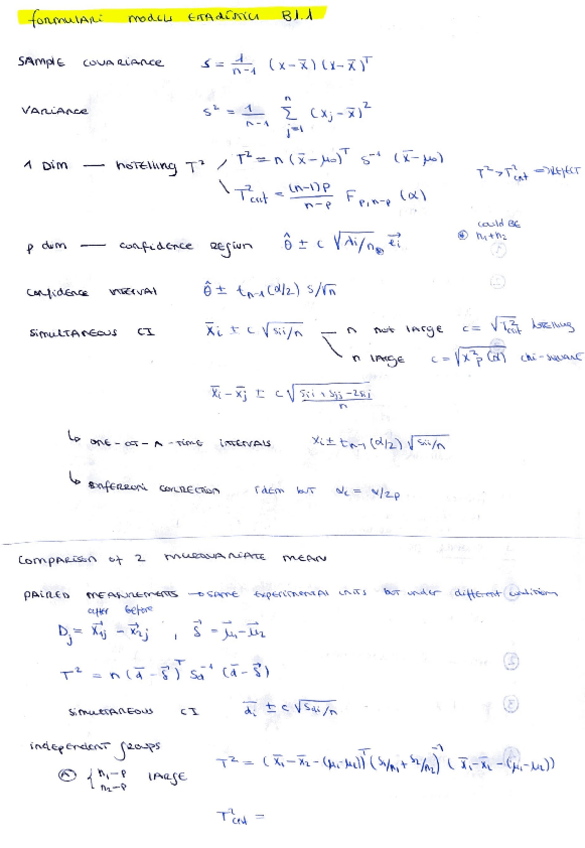 formulari models estadístics B1.1
SAMPLE COVARIANCE S = 1/(n-1) (x-x̄)(x-x̄)ᵀ
VARIANCE s² = 1/(n-1) Σⱼ₌₁ⁿ (xⱼ-x̄)²
1 DIM — HOTELLING T² T² = n(x̄-μ₀)ᵀ S⁻¹ (x̄-μ₀)
T²crit = (n-1)p/(n-p) F p,n-p (α)
T² > T²crit ⇒ REJECT
p dim — confidence REGION θ̂ ± c √(λi/n) ⊛ e⃗i
⊛ could BE n₁+n₂
CONFIDENCE INTERVAL θ̂ ± tn-1(α/2) s/√n
SIMULTANEOUS CI x̄i ± c √(sii/n) — n not large c = √T²crit hotelling
n large c = √(χ²p(α)) chi-square
x̄i - x̄j ± c √((sii + sjj - 2sij)/n)
↳ ONE-AT-A-TIME INTERVALS xi ± tn-1(α/2) √(sii/n)
↳ BONFERRONI CORRECTION IDEM BUT αc = α/2p
COMPARISON OF 2 MULTIVARIATE MEAN
PAIRED MEASUREMENTS → SAME EXPERIMENTAL UNITS but under different condition
after before
Dj = x⃗1j - x⃗2j , δ⃗ = μ⃗₁ - μ⃗₂
T² = n(d̄-δ⃗)ᵀ Sd⁻¹ (d̄-δ⃗)
SIMULTANEOUS CI d̄i ± c √(sdi/n)
independent groups
Ⓐ { n₁-p n₂-p LARGE T² = (x̄₁-x̄₂-(μ₁-μ₂))ᵀ (S₁/n₁ + S₂/n₂)⁻¹ (x̄₁-x̄₂-(μ₁-μ₂))
T²crit =